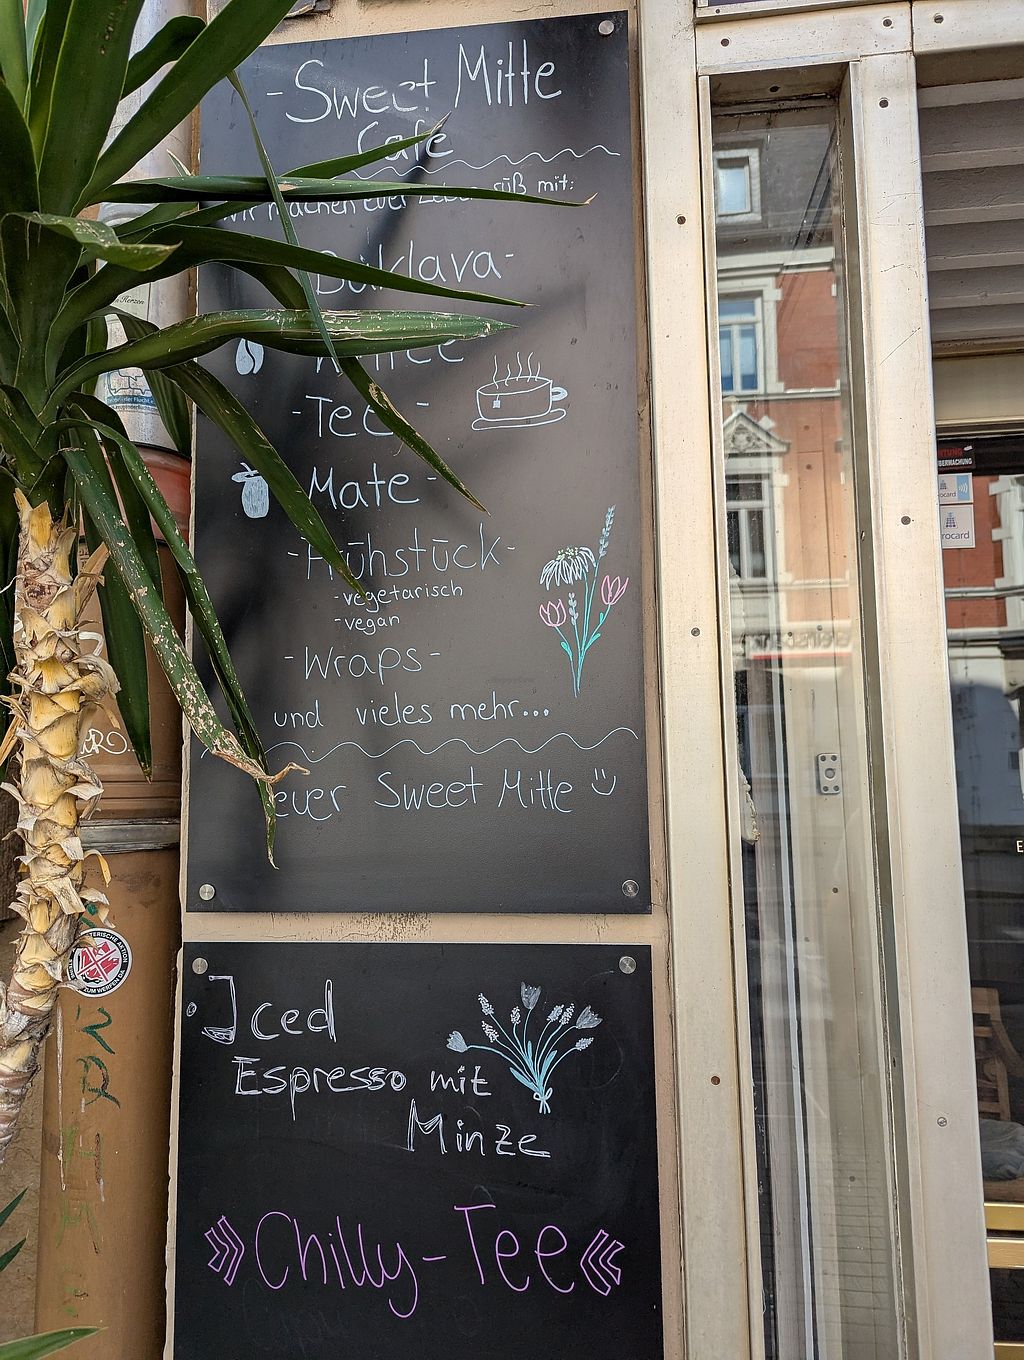 -Sweet Mitte
Cafe
wir machen euer süß mit:
Baklava-
-Tee-
Mate-
-Frühstück-
-vegetarisch
-vegan
-Wraps-
und vieles mehr...
euer Sweet Mitte
Iced
Espresso mit
Minze
»Chilly-Tee«